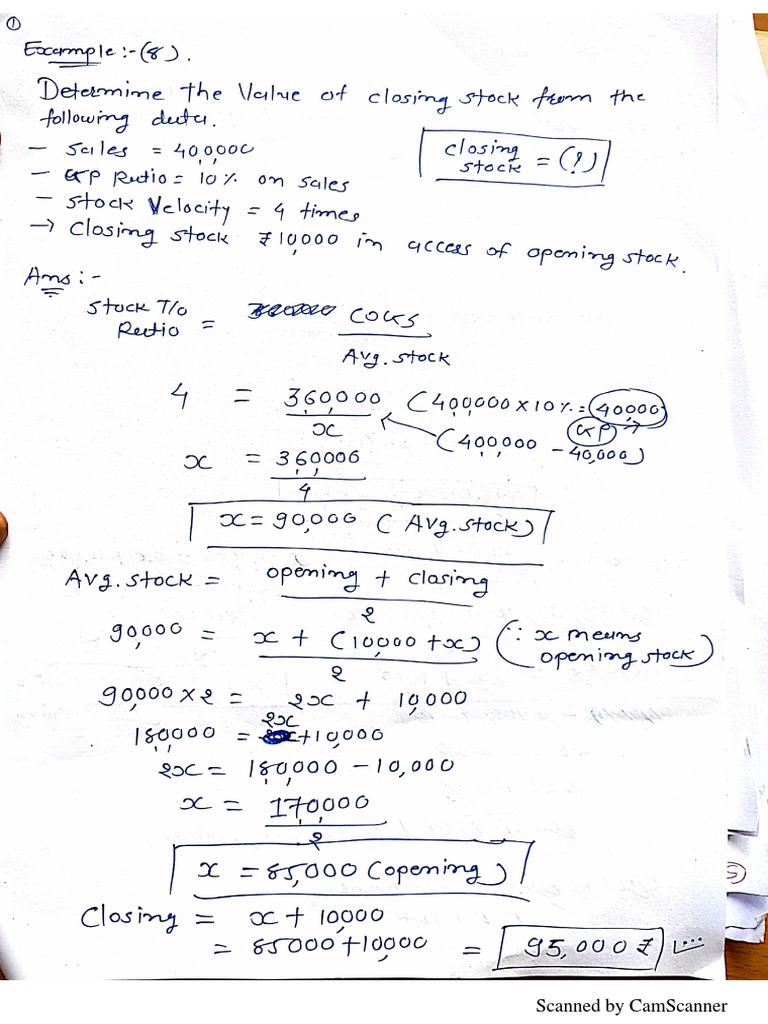 ①
Example :- (8).
Determine the Value of closing stock from the
following data.
- Sales = 40,0,000
closing stock = (?)
- GP Ratio = 10% on sales
- Stock Velocity = 4 times
→ Closing stock ₹10,000 in access of opening stock.
Ans :-
Stock T/o Ratio = COGS
Avg. stock
4 = 3,60,000 (4,00,000 x 10% = 40,000)
x (4,00,000 - 40,000) GP
x = 3,60,000
4
x = 90,000 (Avg. stock)
Avg. stock = opening + closing
2
90,000 = x + (10,000 + x) (∵ x means
2 opening stock)
90,000 x 2 = 2x + 10,000
2x
180,000 = +10,000
2x = 180,000 - 10,000
x = 170,000
2
x = 85,000 (opening)
Closing = x + 10000
= 85000 + 10,000 = 95,000 ₹
5
Scanned by CamScanner